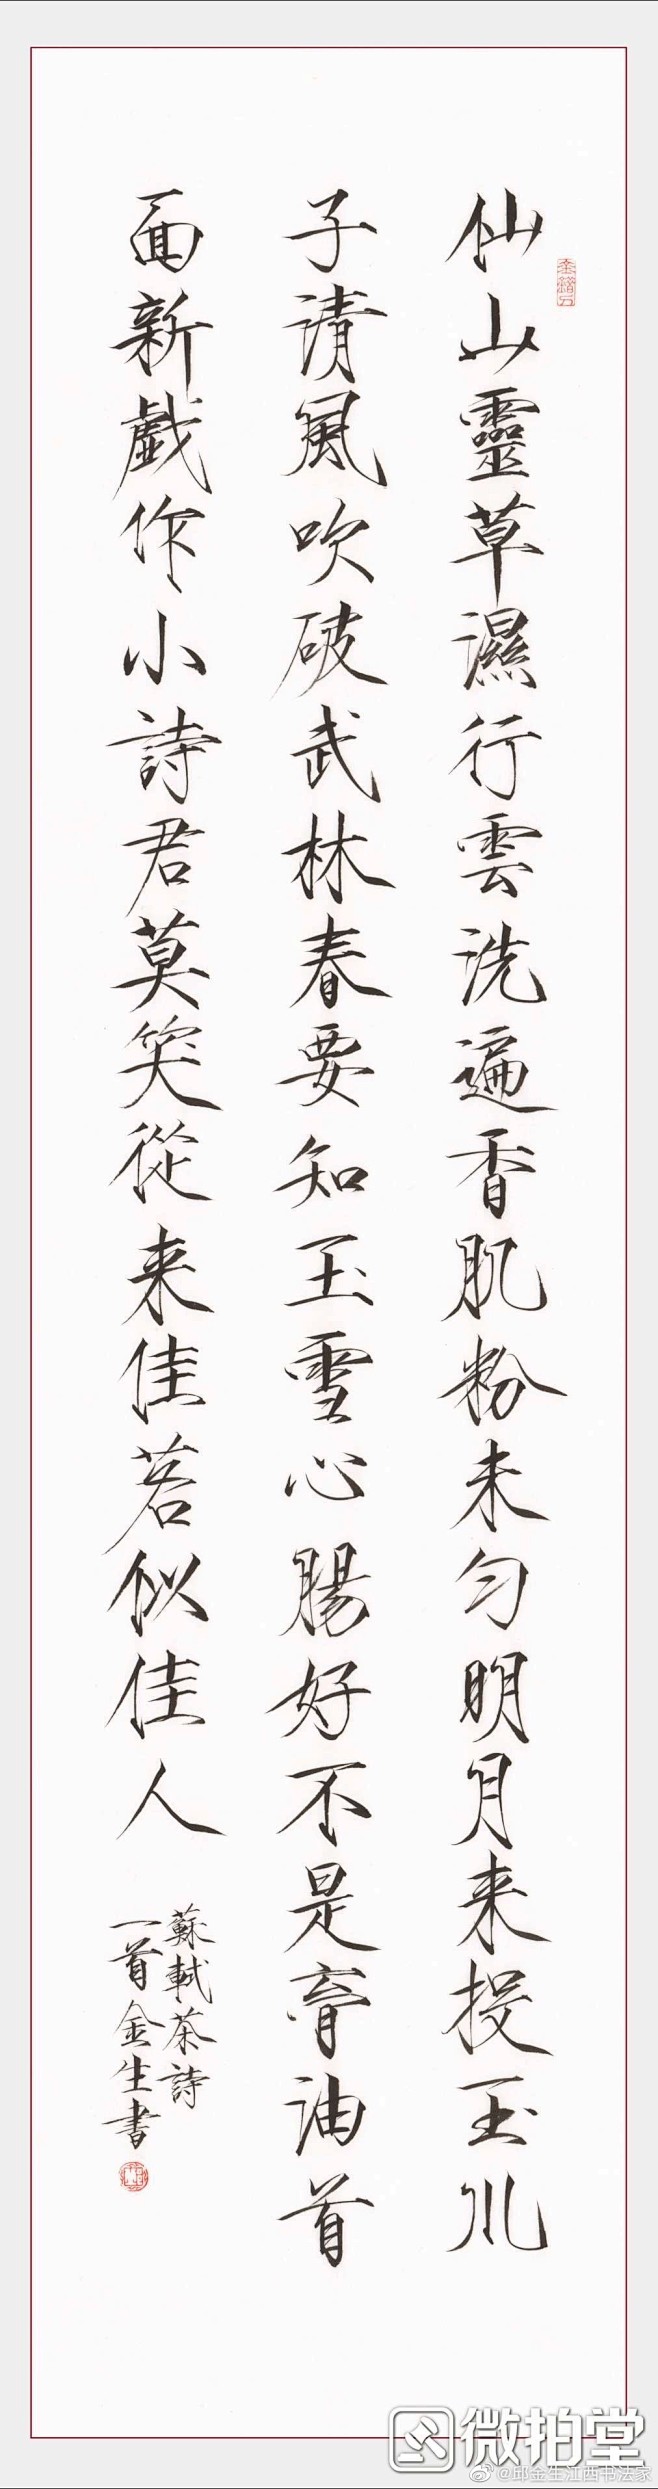 仙山靈草濕行雲洗遍香肌粉未匀明月来投玉川
子清風吹破武林春要知玉雪心腸好不是膏油首
面新戯作小詩君莫笑從来佳茗似佳人
蘇軾茶詩
一首金生書
金錯刀
微拍堂
@邱金生江西书法家